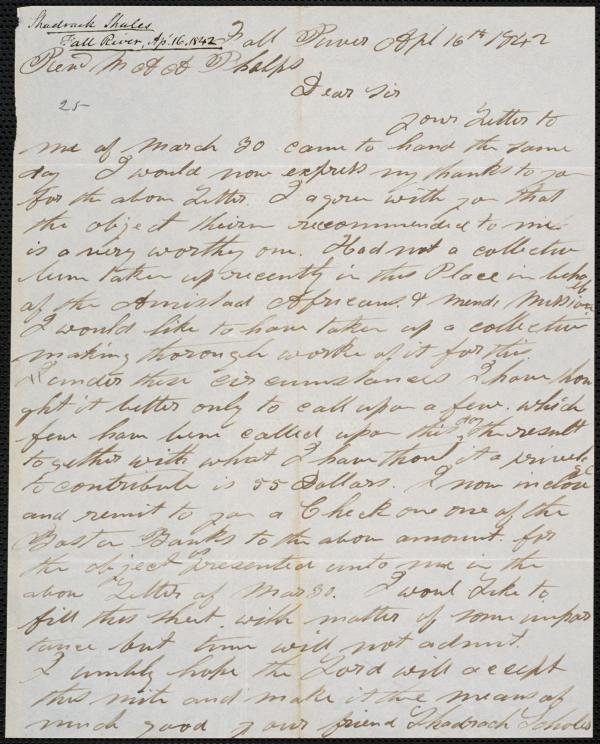 Shadrack Sholes
Fall River, Ap. 16, 1842
Fall River Apl 16th 1842
Revd Mr A A Phelps
Dear Sir
25
your Letter to
me of March 30 came to hand the same
day I would now express my thanks to you
for the above Letter. I agree with you that
the object therin recommended to me
is a very worthy one. Had not a collective
been taken up recently in this Place in behalf
of the Amistad Africans & Mendi Mission
I would like to have taken up a collective
making thorough worke of it for this.
under these circumstances I have thou
ght it better only to call upon a few. which
few have been called upon this day the result
together with what I have thout it a priviledge
to contribute is 55 Dollars. I now inclose
and remit to you a Check on one of the
Boston Banks to the above amount. for
the object as presented unto me in the
above Letter of Mar 30. I woul Like to
fill this sheet with matter of some impor
tance but time will not admit.
I umbly hope the Lord will accept
this mite and make it the means of
much good your friend Shadrach Scholes